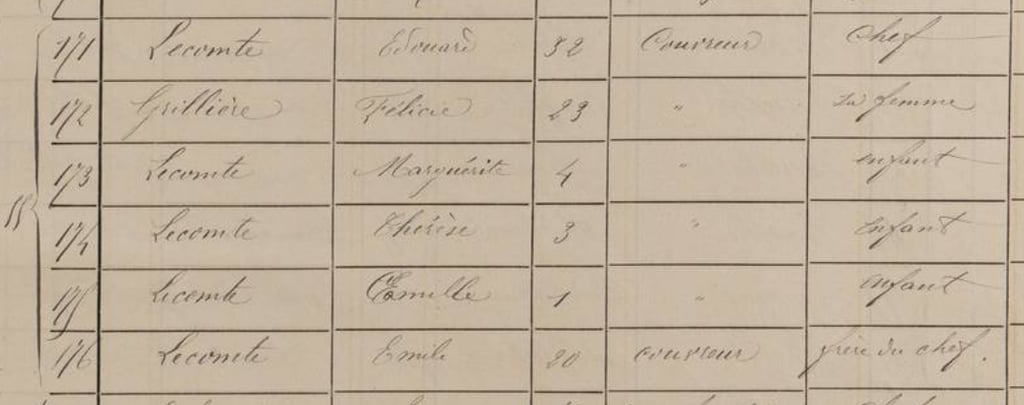 171 Lecomte Edouard 32 Couvreur Chef
172 Grillière Félicie 23 " sa femme
173 Lecomte Marguérite 4 " enfant
174 Lecomte Thérèse 3 " enfant
175 Lecomte 1 " enfant
176 Lecomte Emile 20 couvreur frère du chef.